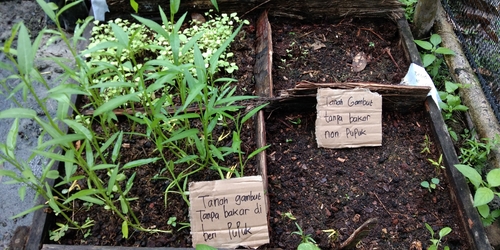 Tanah Gambut
tanpa bakar
non Pupuk
Tanah gambut
Tanpa bakar di
beri Pupuk